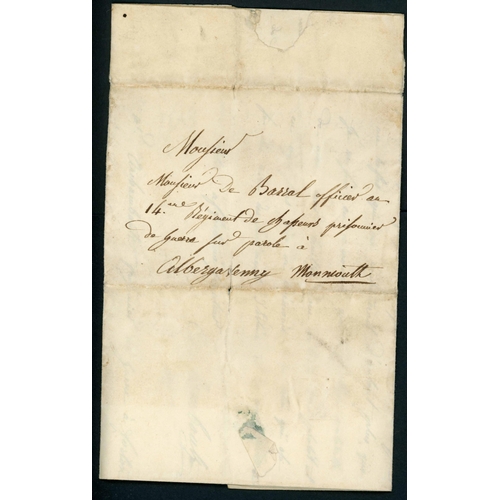 Monsieur
Monsieur de Barral officier au
14.me Régiment de chasseurs prisonnier
de guerre sur parole à
Abergavenny Monmouth